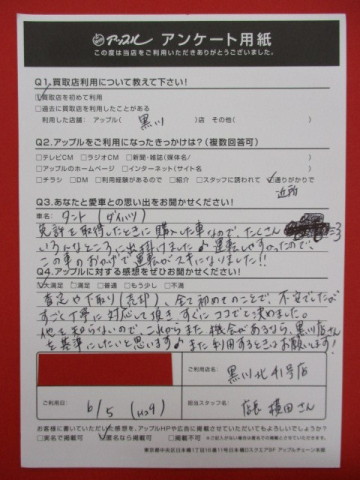 アップル アンケート用紙
この度は当店をご利用いただきありがとうございました。
Q1.買取店利用について教えて下さい!
☑買取店を初めて利用
□過去に買取店を利用したことがある
利用した店舗: アップル( 黒川 )店 その他( )
Q2.アップルをご利用になったきっかけは?(複数回答可)
□テレビCM □ラジオCM □新聞・雑誌(媒体名/ )
□ホームページ □インターネット(サイト名 )
□チラシ □DM □利用経験があるので □紹介 □スタッフに誘われて ☑通りがかりで
近所
Q3.あなたと愛車との思い出をお聞かせください!
車名: タント (ダイハツ)
免許を取得したときに購入した車なので、たくさん
いろんなところに出掛けました♪運転しやすかったので、
この車のおかげで運転がスキになりました!!
Q4.アップルに対する感想をぜひお聞かせください!
☑大満足 □満足 □普通 □もう少し □不満
査定や下取り(売却)、全て初めてのことで、不安でしたが
すごく丁寧に対応して頂き、すぐにココでと決めました。
他を知らないので、これからまた機会があるなら、黒川店さん
を基準にしたいと思います♪また利用するときはお願いします!
ご利用店名:
黒川北41号店
ご利用日:
6/5 (H29)
担当スタッフ名:
店長 横田さん
お客様に書いていただいた感想を、アップルHPや広告に掲載させていただいてもよろしいでしょうか?
□実名で掲載可 ☑匿名なら掲載可 □掲載不可
東京都中央区日本橋1丁目16番11号日本橋Dスクエア2F アップルチェーン本部